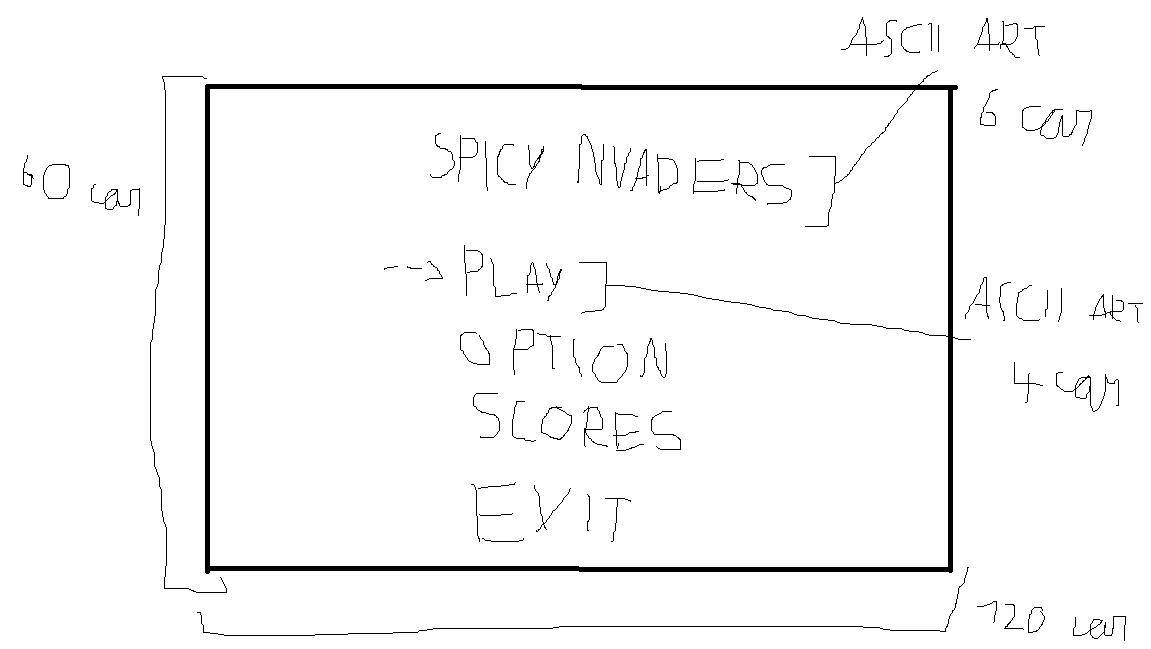 ASCII ART
6 car
SPICY NVADERS
60 car
--> PLAY
ASCII ART
4 car
OPTION
SCORES
EXIT
120 car